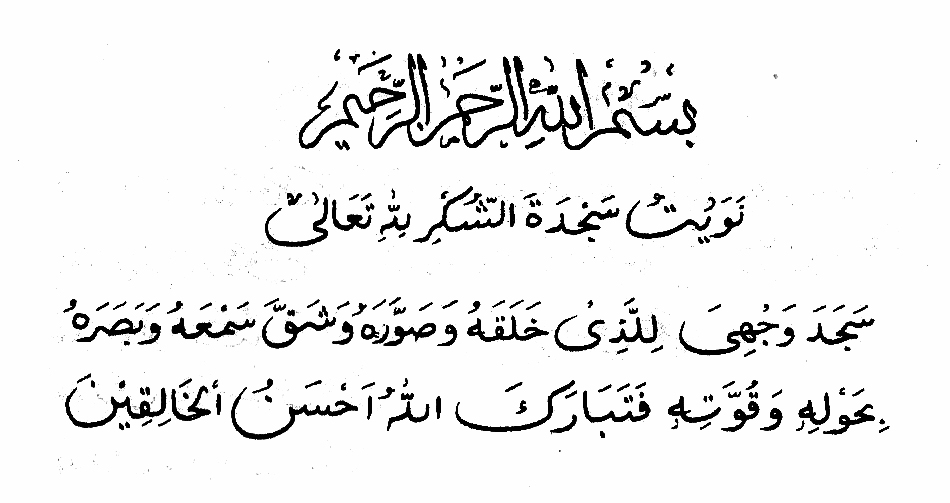 بِسْمِ اللهِ الرَّحْمَنِ الرَّحِيْمِ
نَوَيْتُ سَجْدَةَ الشُّكْرِ لِلّٰهِ تَعَالىٰ
سَجَدَ وَجْهِيَ لِلَّذِى خَلَقَهُ وَصَوَّرَهُ وَشَقَّ سَمْعَهُ وَبَصَرَهُ
بِحَوْلِهِ وَقُوَّتِهِ فَتَبَارَكَ اللهُ اَحْسَنُ الْخَالِقِيْنَ